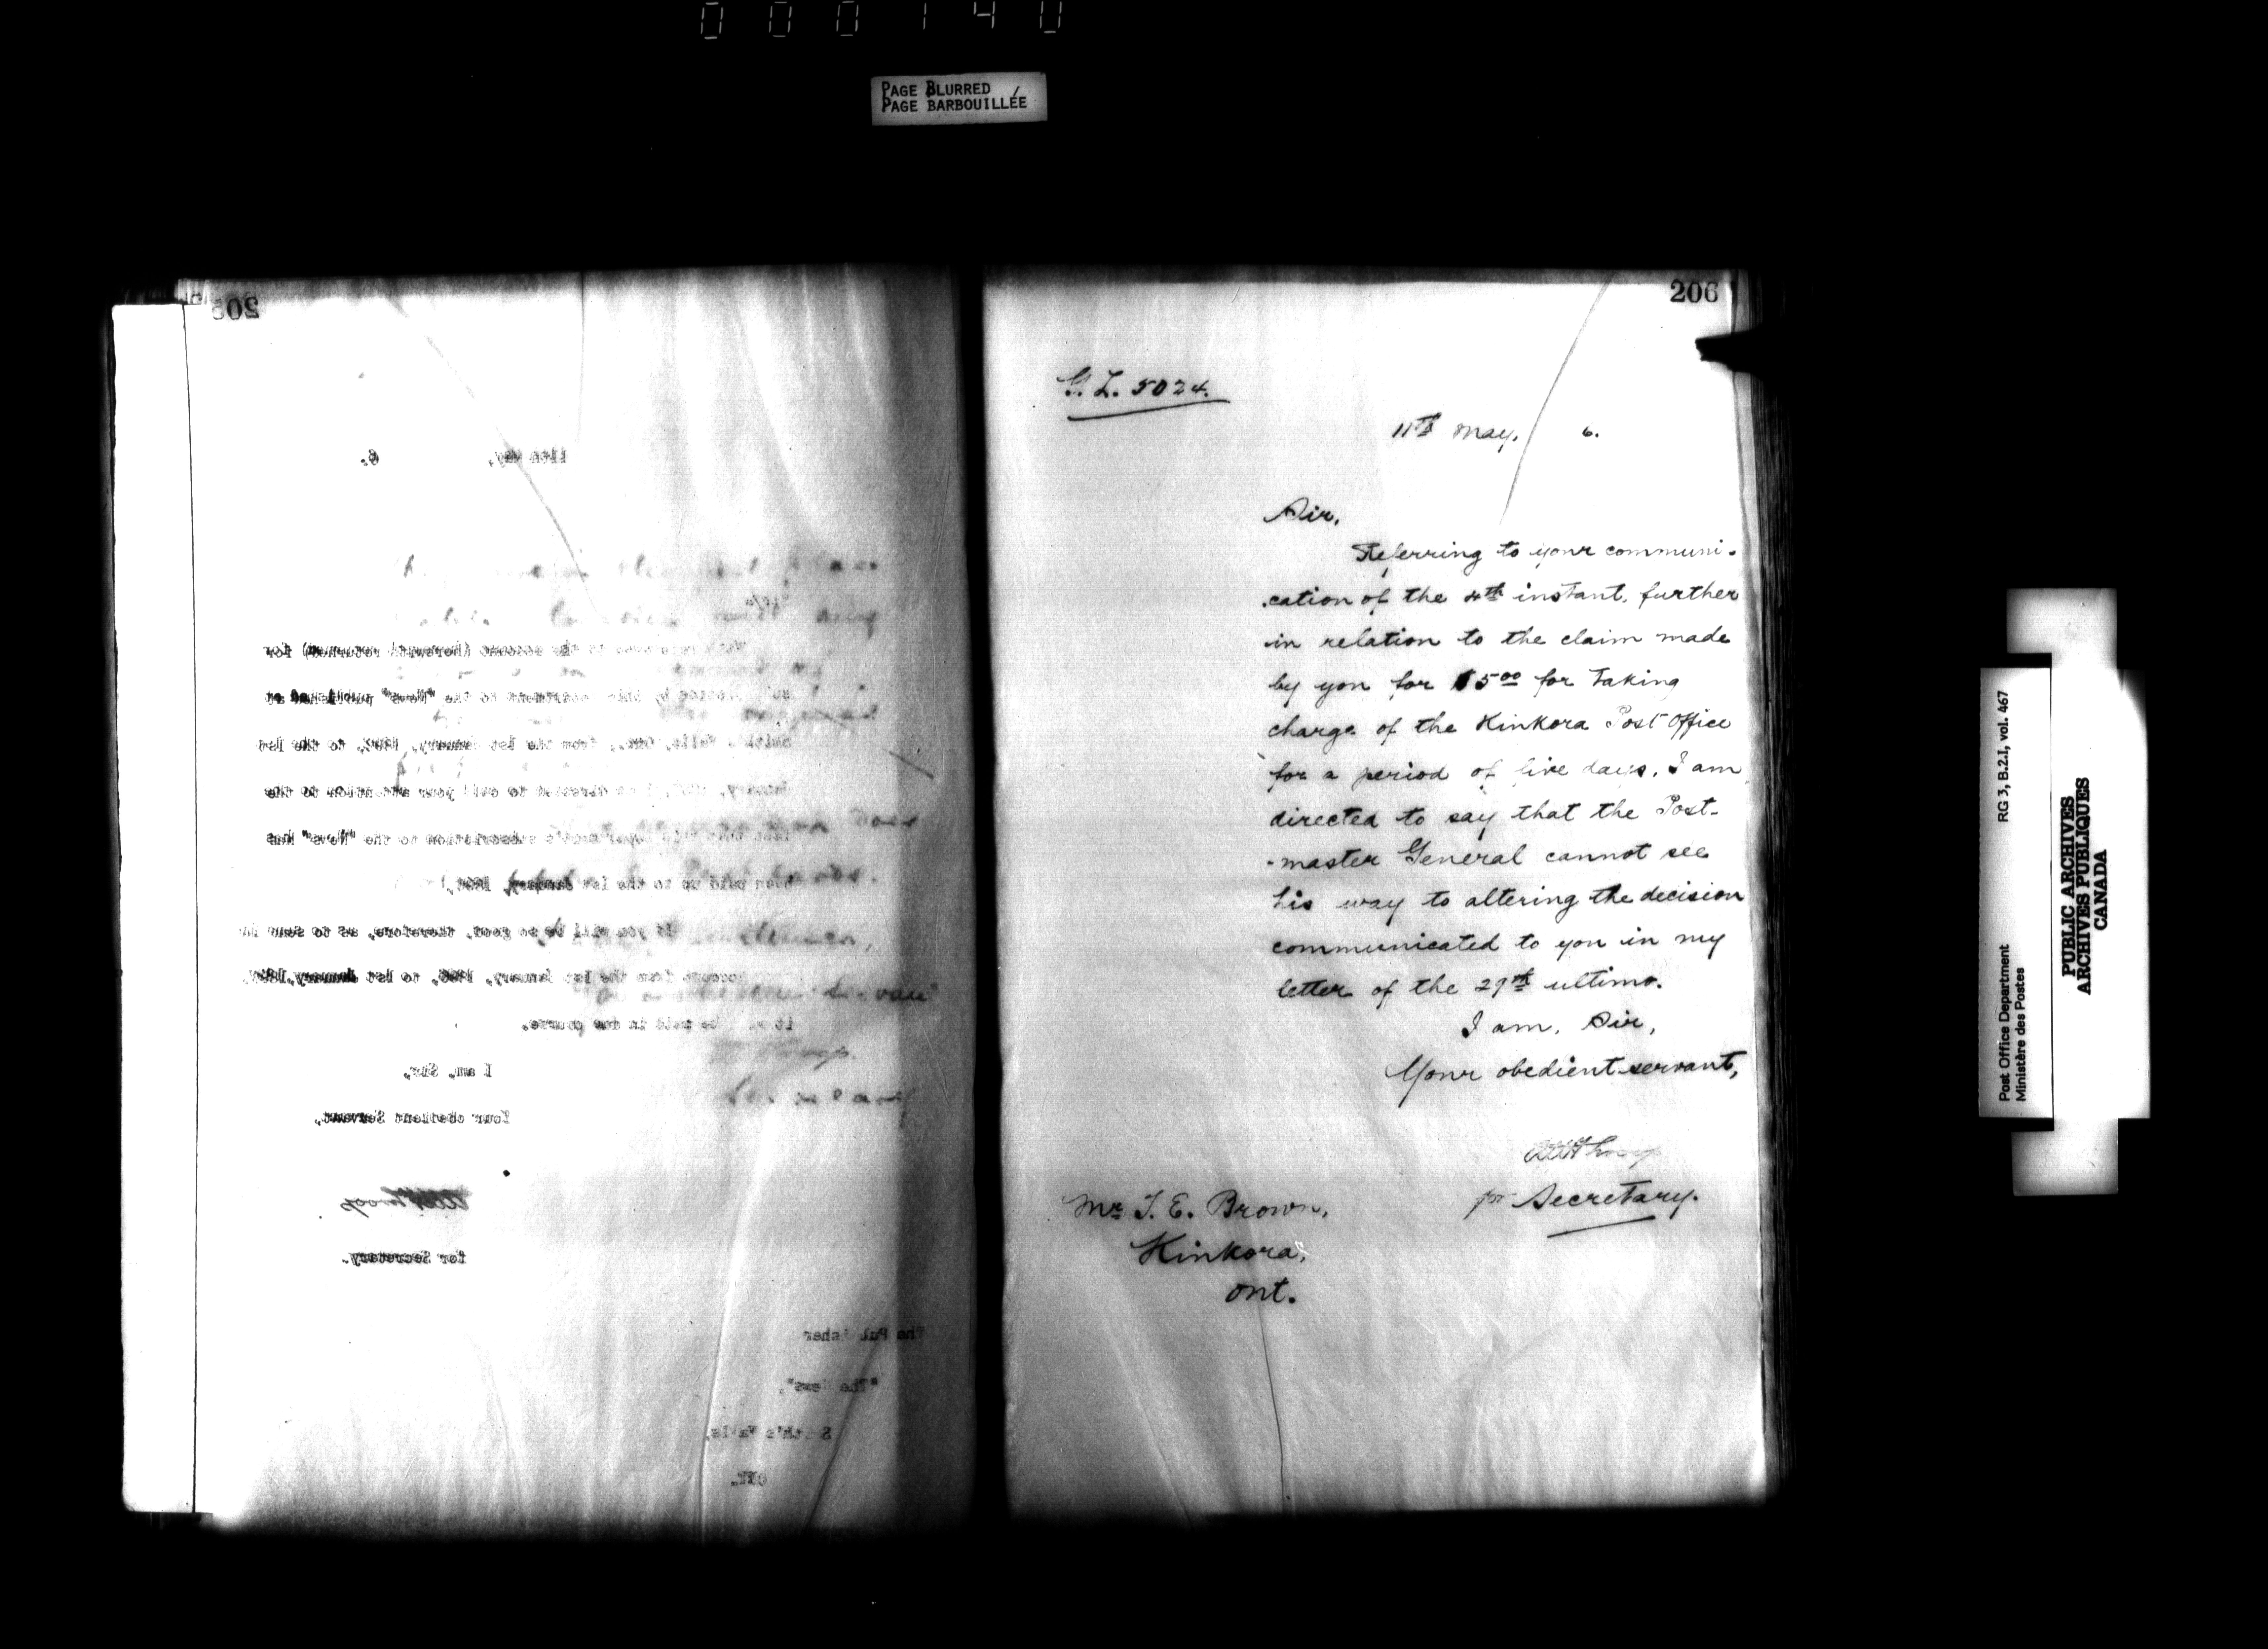 000140
PAGE BLURRED
PAGE BARBOUILLÉE
205
11th May, 6.
With reference to the account (herewith returned) for
subscription by this Department to the "News" published at
Smith's Falls, Ont., from the 1st January, to the 1st
January, I am directed to call your attention to the
fact that this Department's subscription to the "News" has
been paid up to the 1st January,
If you will be so good, therefore, as to send an
account from the 1st January, to 1st January,
it will be paid in due course.
I am, Sir,
Your obedient Servant,
for Secretary.
The Publisher
"The News",
Smith's Falls,
Ont.
206
G. L. 5024.
11th May, 6.
Sir,
Referring to your communi-
cation of the 4th instant, further
in relation to the claim made
by you for $5.00 for taking
charge of the Kinkora Post Office
for a period of five days, I am
directed to say that the Post-
-master General cannot see
his way to altering the decision
communicated to you in my
letter of the 29th ultimo.
I am, Sir,
Your obedient servant,
pr Secretary.
Mr. T. E. Brown,
Kinkora,
Ont.
Post Office Department RG 3, B.2.I, vol. 467
Ministère des Postes
PUBLIC ARCHIVES
ARCHIVES PUBLIQUES
CANADA